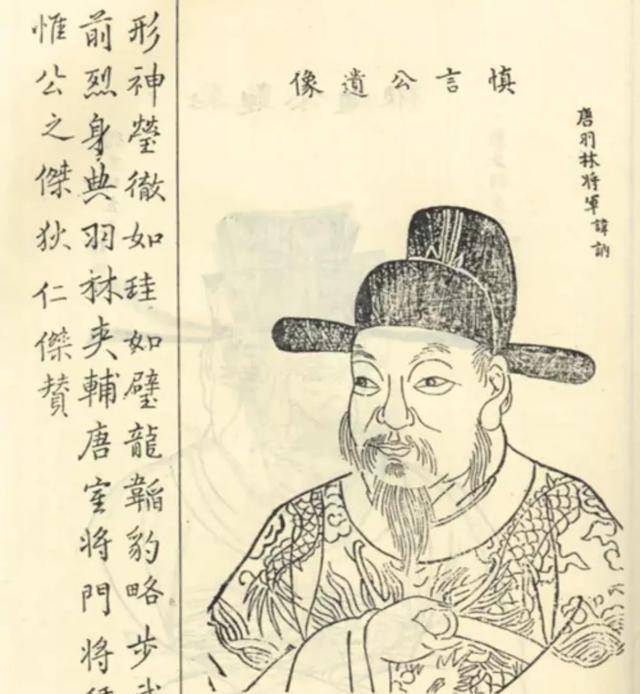 慎言公遺像
唐羽林將軍諱訥
形神瑩徹如珪如璧龍韜豹略步
前烈身典羽林夾輔唐室將門將
惟公之傑狄仁傑贊